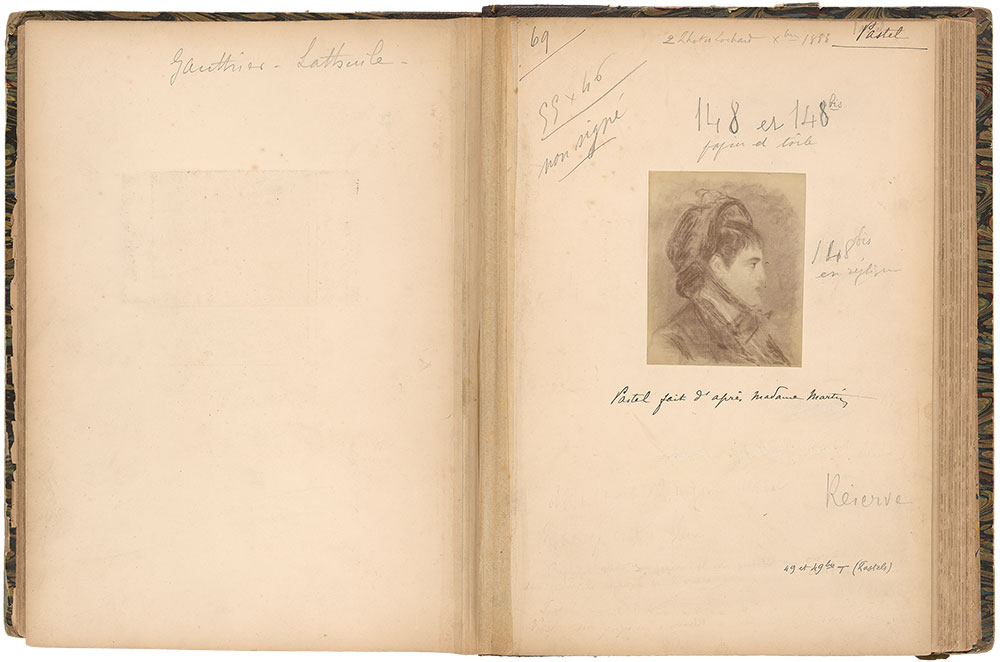 Gauthier - Lathuile -
69
2 Photos Lochard xbre 1883
Pastel
55 x 46
non signé
148 et 148 bis
papier et toile
148 bis
en
Pastel fait d'après Madame Martin
Réserve
49 et 49 bis T (Pastels)